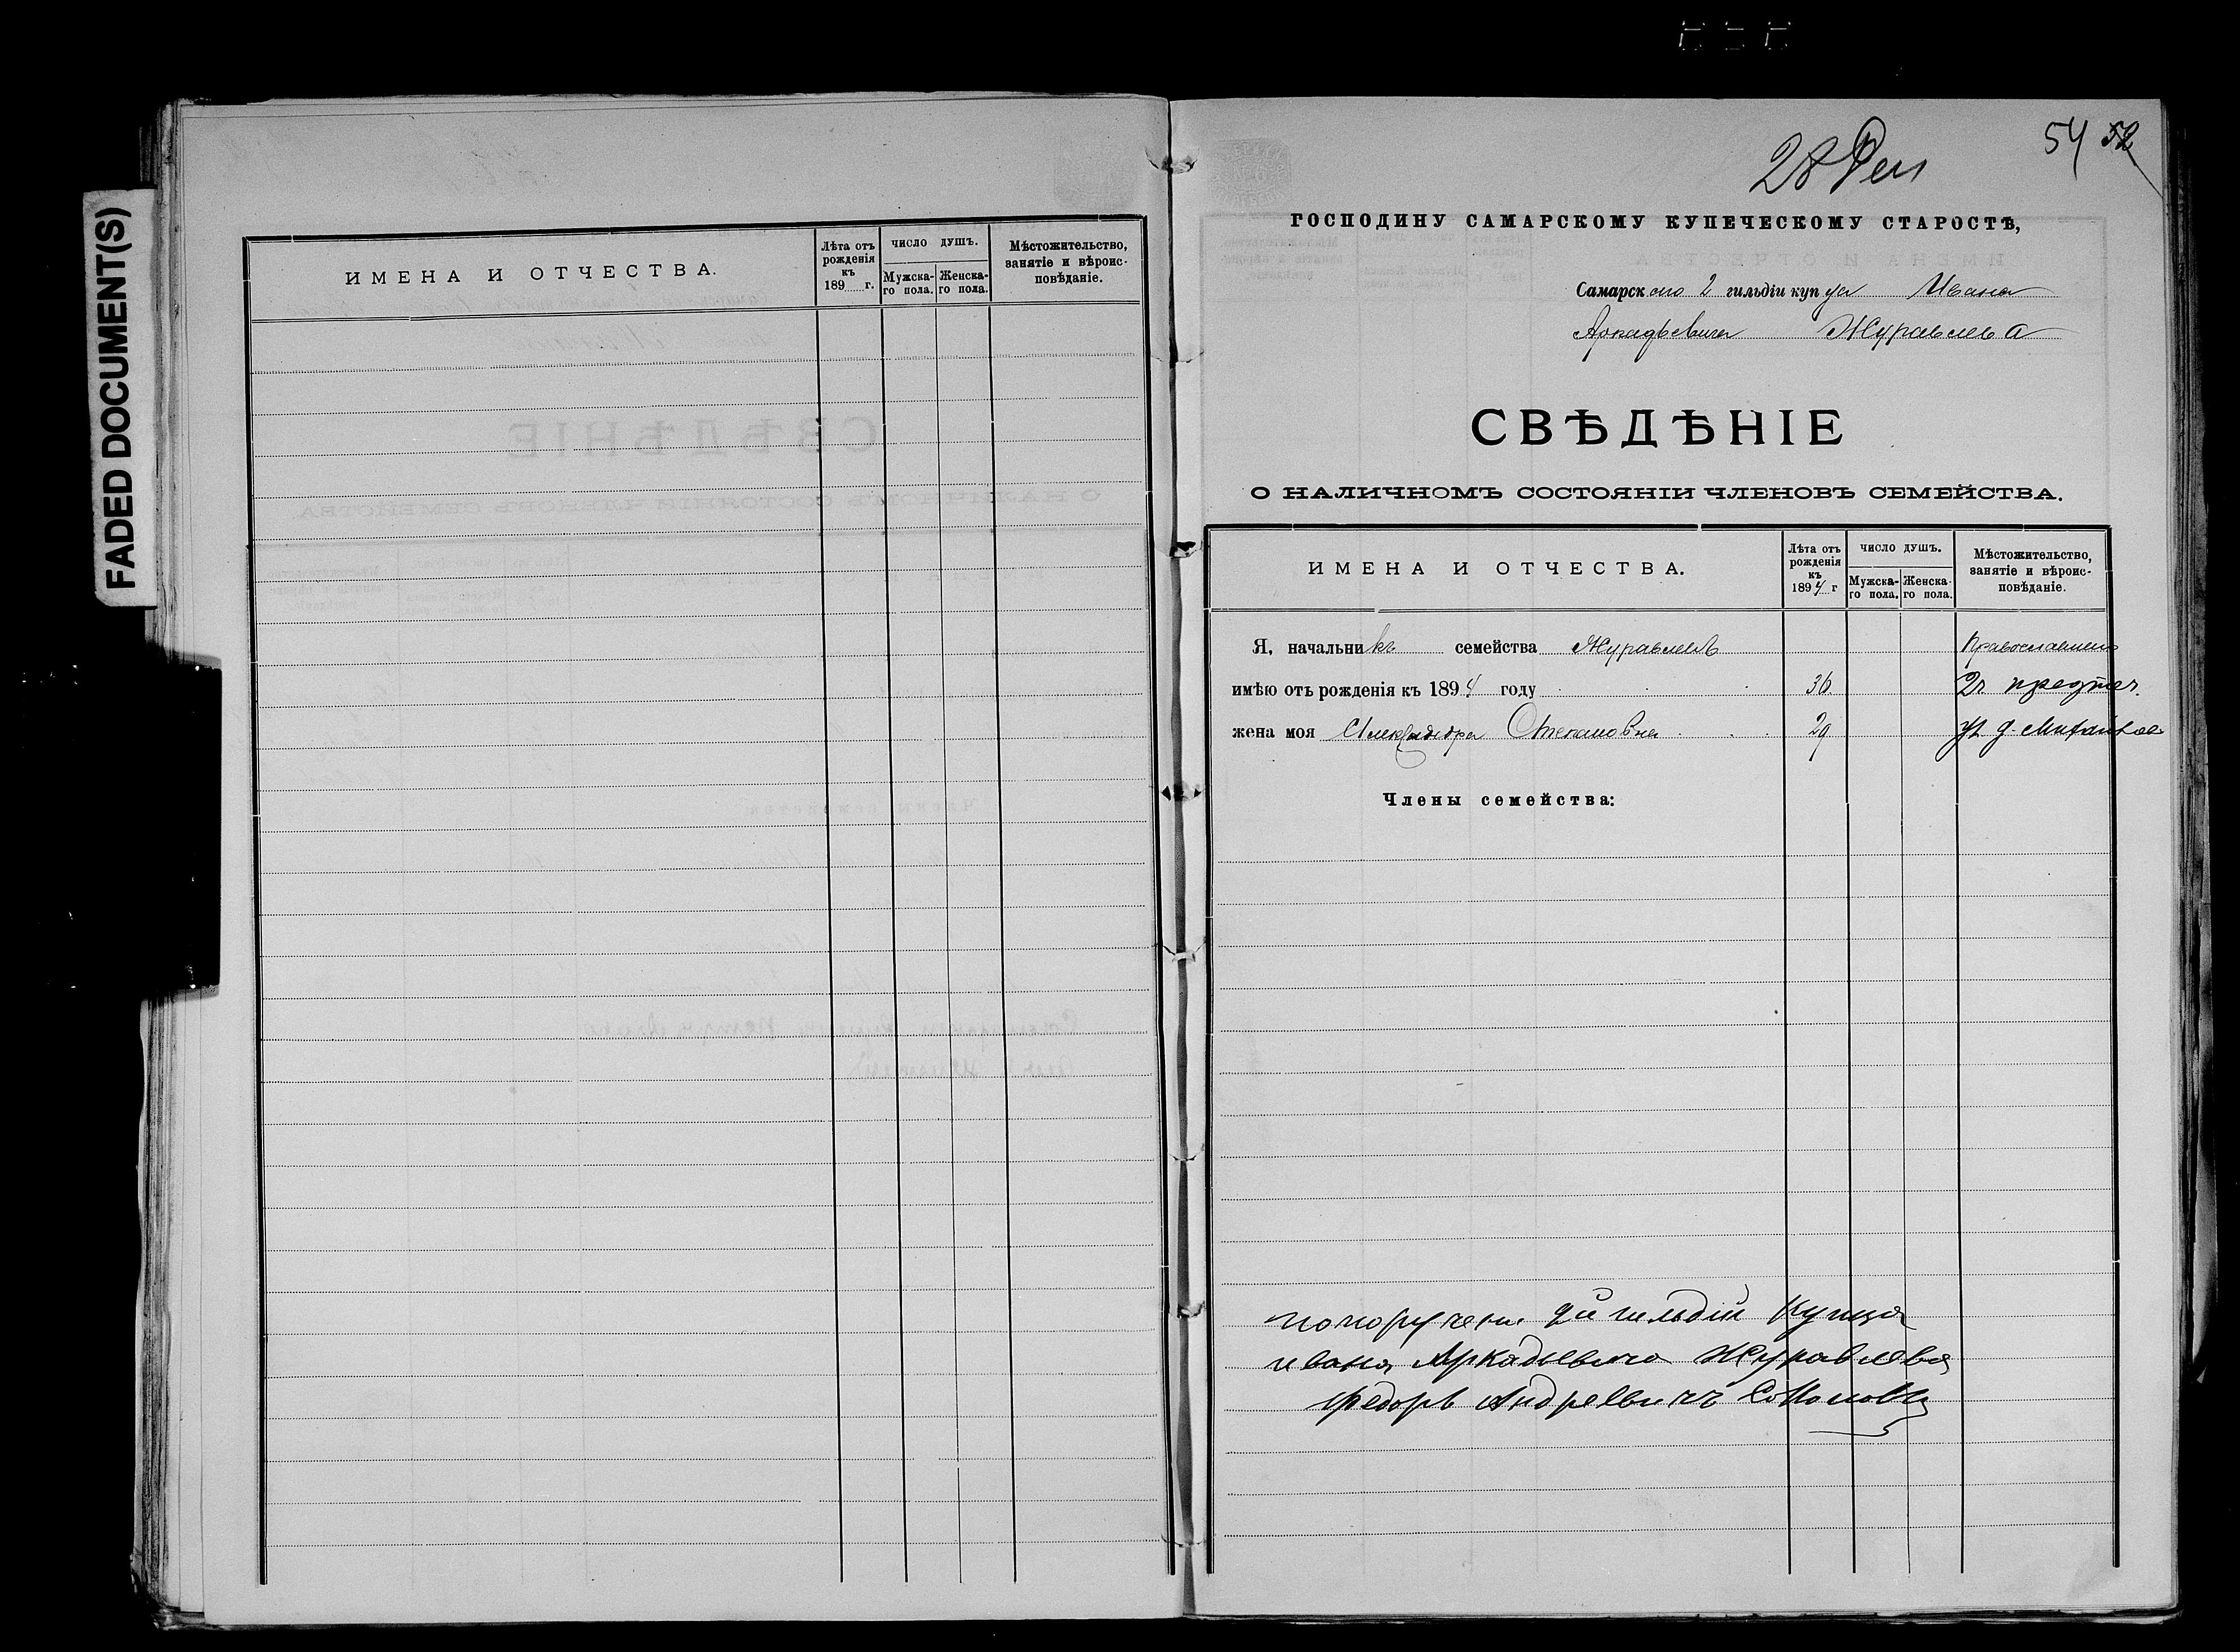 FADED DOCUMENT(S)
ИМЕНА И ОТЧЕСТВА.
Лѣта отъ рожденія къ 189 г.
ЧИСЛО ДУШЪ.
Мужска-го пола.
Женска-го пола.
Мѣстожительство, занятіе и вѣроис-повѣданіе.
54 52
28 Дек
ГОСПОДИНУ САМАРСКОМУ КУПЕЧЕСКОМУ СТАРОСТѢ,
Самарского 2 гильдіи купца Ивана
Аркадьевича Журавлева
СВѢДѢНІЕ
О НАЛИЧНОМЪ СОСТОЯНІИ ЧЛЕНОВЪ СЕМЕЙСТВА.
ИМЕНА И ОТЧЕСТВА.
Лѣта отъ рожденія къ 1894 г
ЧИСЛО ДУШЪ.
Мужска-го пола.
Женска-го пола.
Мѣстожительство, занятіе и вѣроис-повѣданіе.
Я, начальникъ семейства Журавлевъ
имѣю отъ рожденія къ 1894 году 36
жена моя Александра Степановна 29
Члены семейства:
2й гильдіи Купца
ивана Аркадьевича Журавлева
Федоръ Андреевичъ